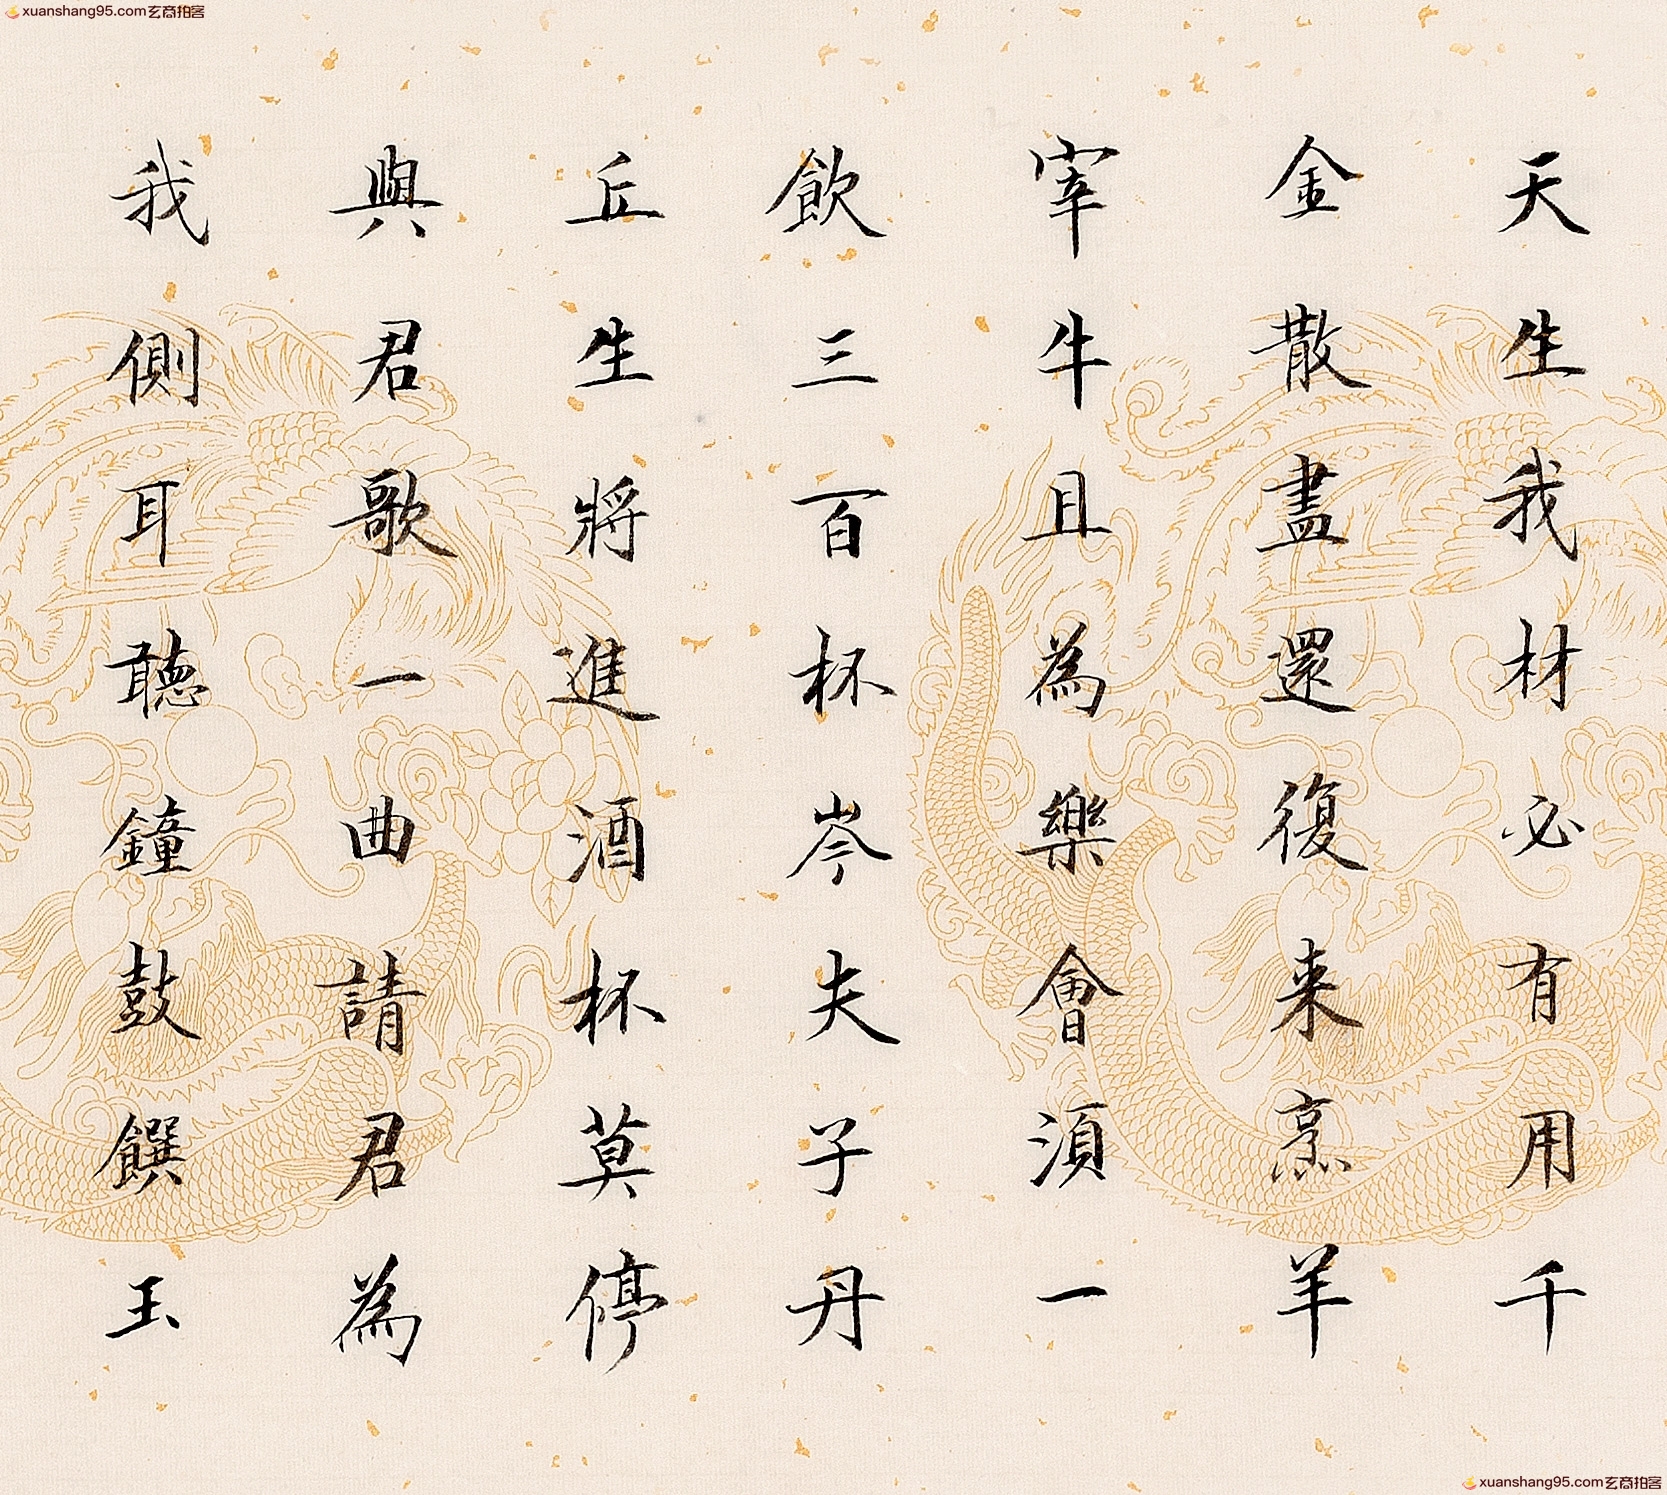 xuanshang95.com玄商拍客
天生我材必有用千
金散盡還復来烹羊
宰牛且為樂會須一
飲三百杯岑夫子丹
丘生將進酒杯莫停
與君歌一曲請君為
我側耳聽鐘鼓饌玉
xuanshang95.com玄商拍客